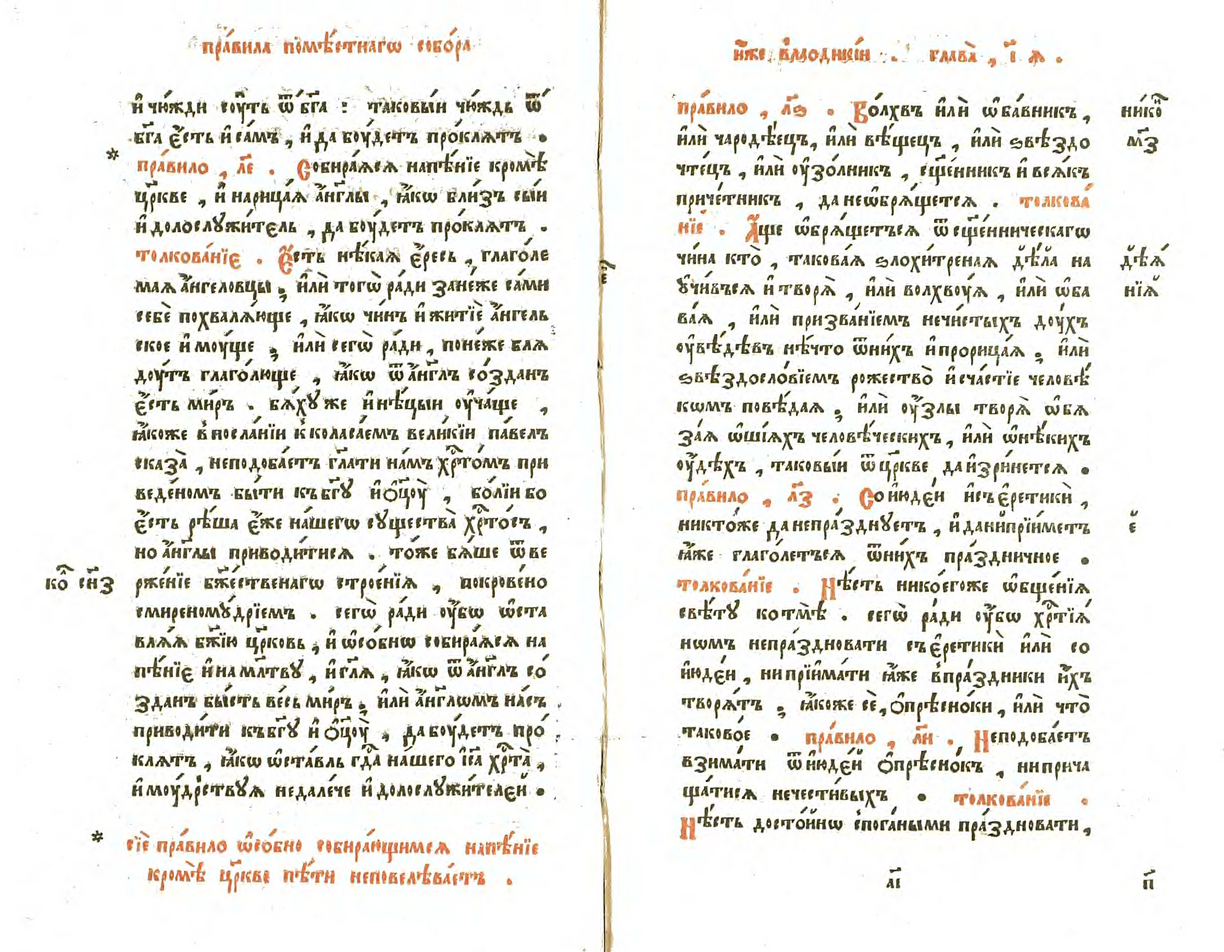 пра́вила помѣ́стнагѡ собо́ра
и҆ чю́жди сꙋ́ть ѿ бг҃а : таковы́и чю́ждь ѿ
бг҃а є҆́сть и҆ са́мъ , и҆ да бꙋ́детъ про́клятъ .
* пра́вило , л҃е . Собира́яся на пѣ́нїе кромѣ̀
цр҃кве , и҆ нарица́я а҆́нг҃лы , ꙗ҆́кѡ бли́зъ сы́и
и҆ до́лослꙋжи́тель , да бꙋ́детъ про́клятъ .
толкова́нїе . Є҆́сть нѣ́кая є҆́ресь , глаго́ле
мая а҆́нгеловцы , и҆лѝ того̀ ра́ди зане́же са́ми
себѐ похваля́юще , ꙗ҆́кѡ чи́нъ и҆ житїѐ а҆́нгель
ское и҆мꙋ́ще , и҆лѝ сегѡ̀ ра́ди , поне́же бля
дꙋ́тъ глаго́люще , ꙗ҆́кѡ ѿ а҆́нг҃лъ со́зданъ
є҆́сть ми́ръ . бя́хꙋ же и҆ нѣ́цыи ᲂу҆ча́ще ,
ꙗ҆́коже в посла́нїи к коласа́емъ вели́кїи па́велъ
сказа̀ , неподоба́етъ гл҃ати на́мъ хрⷭ҇то́мъ при
веде́номъ бы́ти къ бг҃ꙋ и҆ ѻ҆ц҃ꙋ̀ , бо́лїи бо
є҆́сть рѣ́ша є҆́же на́шегѡ сꙋщества̀ хрⷭ҇то́съ ,
но а҆́нг҃лы приводи́тися . то́же бя́ше ѿве
ко҃ сн҃з
рже́нїе бж҃е́ственагѡ строе́нїя , покрове́но
смиреномꙋ́дрїемъ . сегѡ̀ ра́ди ᲂу҆́бѡ ѡ҆ста
вля́я бж҃їю цр҃ковь , и҆ ѡ҆со́бнѡ собира́яся на
пѣ́нїе и҆ на мл҃твꙋ , и҆ гл҃я , ꙗ҆́кѡ ѿ а҆́нг҃лъ со́
зданъ бы́сть ве́сь ми́ръ , и҆лѝ а҆́нг҃лѡмъ на́съ
приводи́ти къ бг҃ꙋ и҆ ѻ҆ц҃ꙋ̀ , да бꙋ́детъ про́
клятъ , ꙗ҆́кѡ ѡ҆ста́вль гдⷭ҇а на́шего і҆с҃а хрⷭ҇та̀ ,
и҆ мꙋ́дрствꙋя недале́че и҆ до́лослꙋжи́телей .
* сїѐ пра́вило ѡ҆со́бно собира́ющимся на пѣ́нїе
кромѣ̀ цр҃кве пѣ́ти неповелѣва́етъ .
и҆́же в лаодикі́и . глава̀ , і҃ я .
пра́вило , л҃ѕ . Во́лхвъ и҆лѝ ѡ҆ба́вникъ ,
нико҃
м҃з
и҆лѝ чародѣ́ецъ , и҆лѝ вѣ́щецъ , и҆лѝ ѕвѣздо
чте́цъ , и҆лѝ ᲂу҆зо́лникъ , сщ҃е́нникъ и҆ вся́къ
приче́тникъ , да не ѡ҆бря́щется . толкова́
нїе . А҆́ще ѡ҆бря́щетъся ѿ сщ҃е́нническагѡ
чи́на кто̀ , такова́я ѕлохи́треная дѣ́ла на
дѣ́я
нїя
ᲂу҆чи́въся и҆ творя̀ , и҆лѝ волхвꙋ́я , и҆лѝ ѡ҆ба
ва́я , и҆лѝ призва́нїемъ нечи́стыхъ дꙋ́хъ
ᲂу҆вѣ́дѣвъ нѣ́что ѿ ни́хъ и҆ прорица́я , и҆лѝ
ѕвѣздосло́вїемъ рожество̀ и҆ сча́стїе человѣ́
кѡмъ повѣ́дая , и҆лѝ ᲂу҆́злы творя̀ ѡ҆бя
за́я ѡ҆ ші́яхъ человѣ́ческихъ , и҆лѝ ѡ҆ нѣ́кихъ
ᲂу҆́дѣхъ , таковы́и ѿ цр҃кве да и҆зри́нется .
пра́вило , л҃з . Со и҆юде́и и҆ съ є҆ретикѝ ,
никто́же да непра́зднꙋетъ , и҆ да ни прїи́метъ
е҃
ꙗ҆́же глаго́летъся ѿ ни́хъ пра́здничное .
толкова́нїе . Нѣ́сть никое́гоже ѡ҆бще́нїя
свѣ́тꙋ ко тмѣ̀ . сегѡ̀ ра́ди ᲂу҆́бѡ хрⷭ҇тїя́
нѡмъ непра́здновати съ є҆ретикѝ и҆лѝ со
и҆юде́и , ни прїима́ти ꙗ҆́же в пра́здники и҆́хъ
творя́тъ , ꙗ҆́коже сѐ , ѻ҆прѣсно́ки , и҆лѝ что̀
таково́е . пра́вило , л҃и . Неподоба́етъ
взима́ти ѿ и҆юде́й ѻ҆прѣсно́къ , ни прича
ща́тися нечести́выхъ . толкова́нїе .
Нѣ́сть досто́йнѡ с пога́ными пра́здновати ,
а҃і
п҃